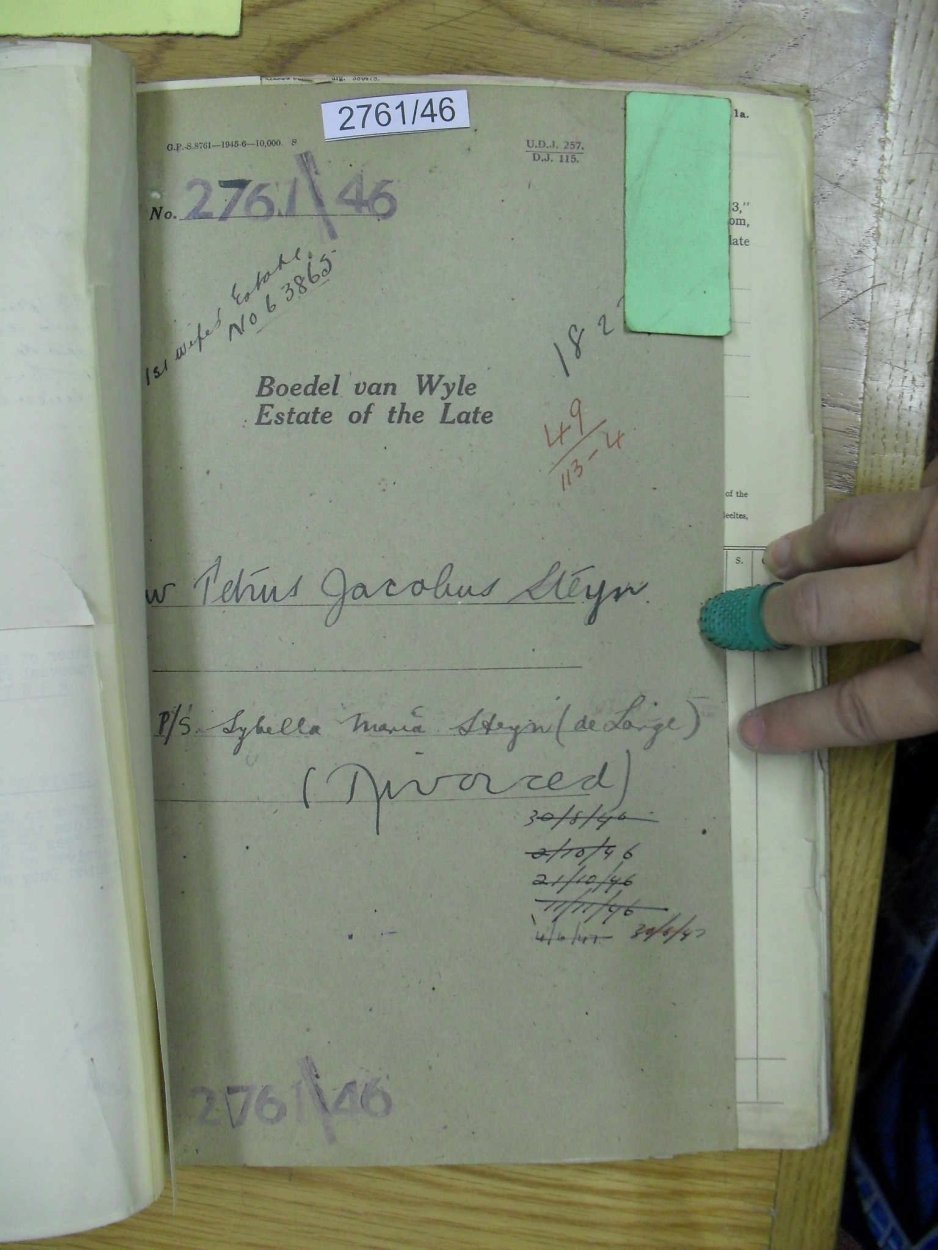 2761/46
G.P.-S.8761—1945-6—10,000. S
U.D.J. 257.
D.J. 115.
No. 2761/46
1st Wife's Estate.
No 63865
18 2
Boedel van Wyle
Estate of the Late
49
113-4
w Petrus Jacobus Steyn
P/S. Sybella Maria Steyn (de Lange)
(Divorced)
30/8/46
2/10/46
21/10/46
11/11/46
4/6/47
2761/46
1a.
3,"
om,
late
of the
leeltes,
S.